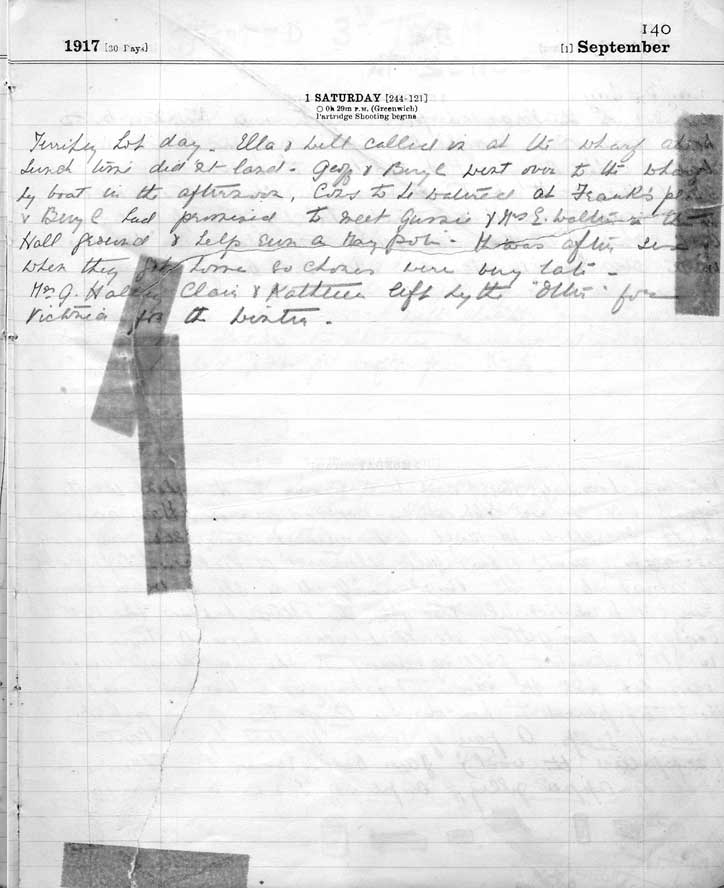 140
1917 [30 Days]
[1] September
1 SATURDAY [244-121]
○ 0h 29m P.M. (Greenwich)
Partridge Shooting begins
Terrifey hot day. Ella & Will called in at the wharf about
lunch time did'nt land. Geoff & Beryl went over to the wharf
by boat in the afternoon, Cows to be watered at Frank's place
& Beryl had promised to meet Gussie & Mrs E. Walter in the
Hall ground & help run a May pole. It was after
when they got home so chores were very late.
Mrs G. Clair & Kathleen left by the "Otter" for
Victoria for the winter.